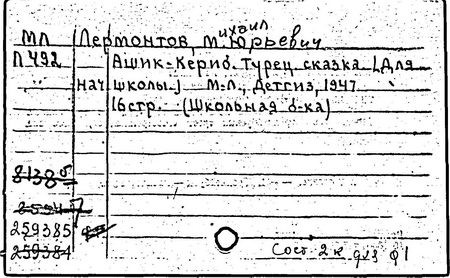 МЛ Лермонтов, Михаил Юрьевич
Л 492 Ашик-Кериб. Турец. сказка. [Для
нач. школы.] М.-Л., Детгиз, 1947
16 стр. (Школьная б-ка)
8138б
259385
259384
Сост 2 к для ф1